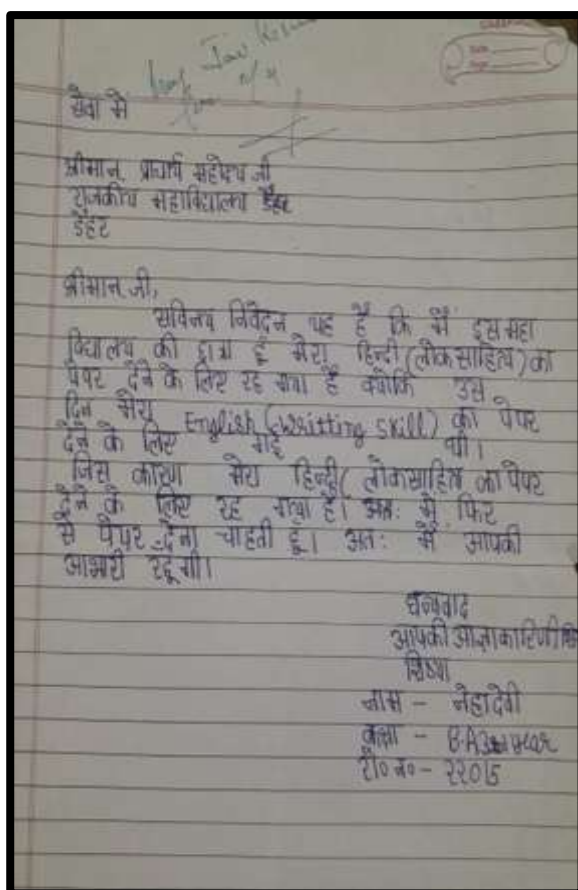 सेवा में
श्रीमान् प्राचार्य महोदय जी
राजकीय महाविद्यालय डैहर
डैहर
श्रीमान् जी,
सविनय निवेदन यह है कि मैं इस महा
विद्यालय की छात्रा हूँ मेरा हिन्दी (लोकसाहित्य) का
पेपर देने के लिए रह गया है क्योंकि उस
दिन मेरा English (Writting Skill) का पेपर
देने के लिए गई थी।
जिस कारण मेरा हिन्दी( लोकसाहित्य का पेपर
देने के लिए रह गया है। अतः मैं फिर
से पेपर देना चाहती हूँ। अतः मैं आपकी
आभारी रहूंगी।
धन्यवाद
आपकी आज्ञाकारिणी
शिष्या
नाम - नेहादेवी
कक्षा - B.A 3rd year
रो० न० - 22015